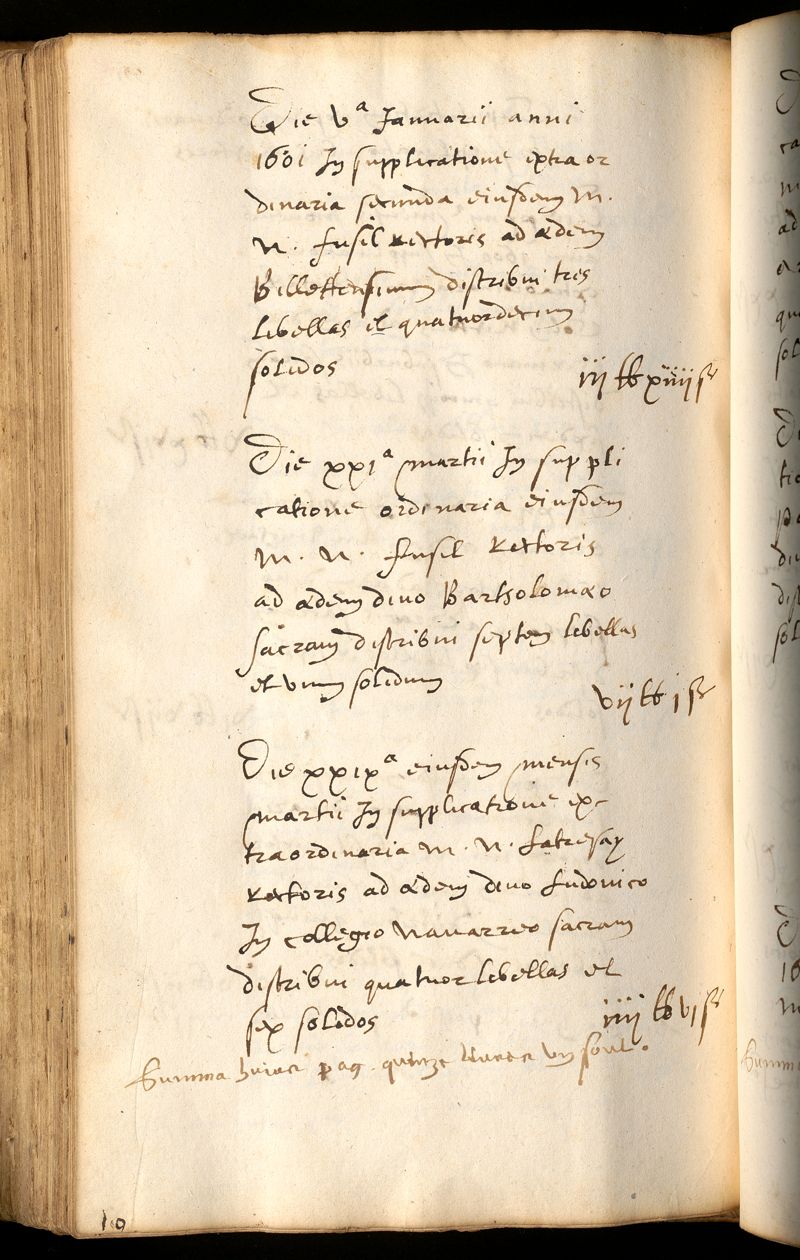 Die Va Januarii anni
1601 In supplicatione extraor
dinaria secunda eiusdem M.
N. fusil Rectoris ad ædem
Billettensium distribui tres
libellas et quatuordecim
solidos
iij lb xiiij s
Die xxia martii In suppli
catione ordinaria eiusdem
M. N. fusil Rectoris
ad ædem divo Bartholomæo
sacram distribui septem libellas
et unum solidum
vij lb j s
Die xxixa eiusdem mensis
martii In supplicatione ex
traordinaria M. N. Latresay
Rectoris ad ædem divo Ludovico
In collegio Navarreo sacram
distribui quatuor libellas et
sex solidos
iiij lb vj s
Summa huius pag. quinze livres soul.
10